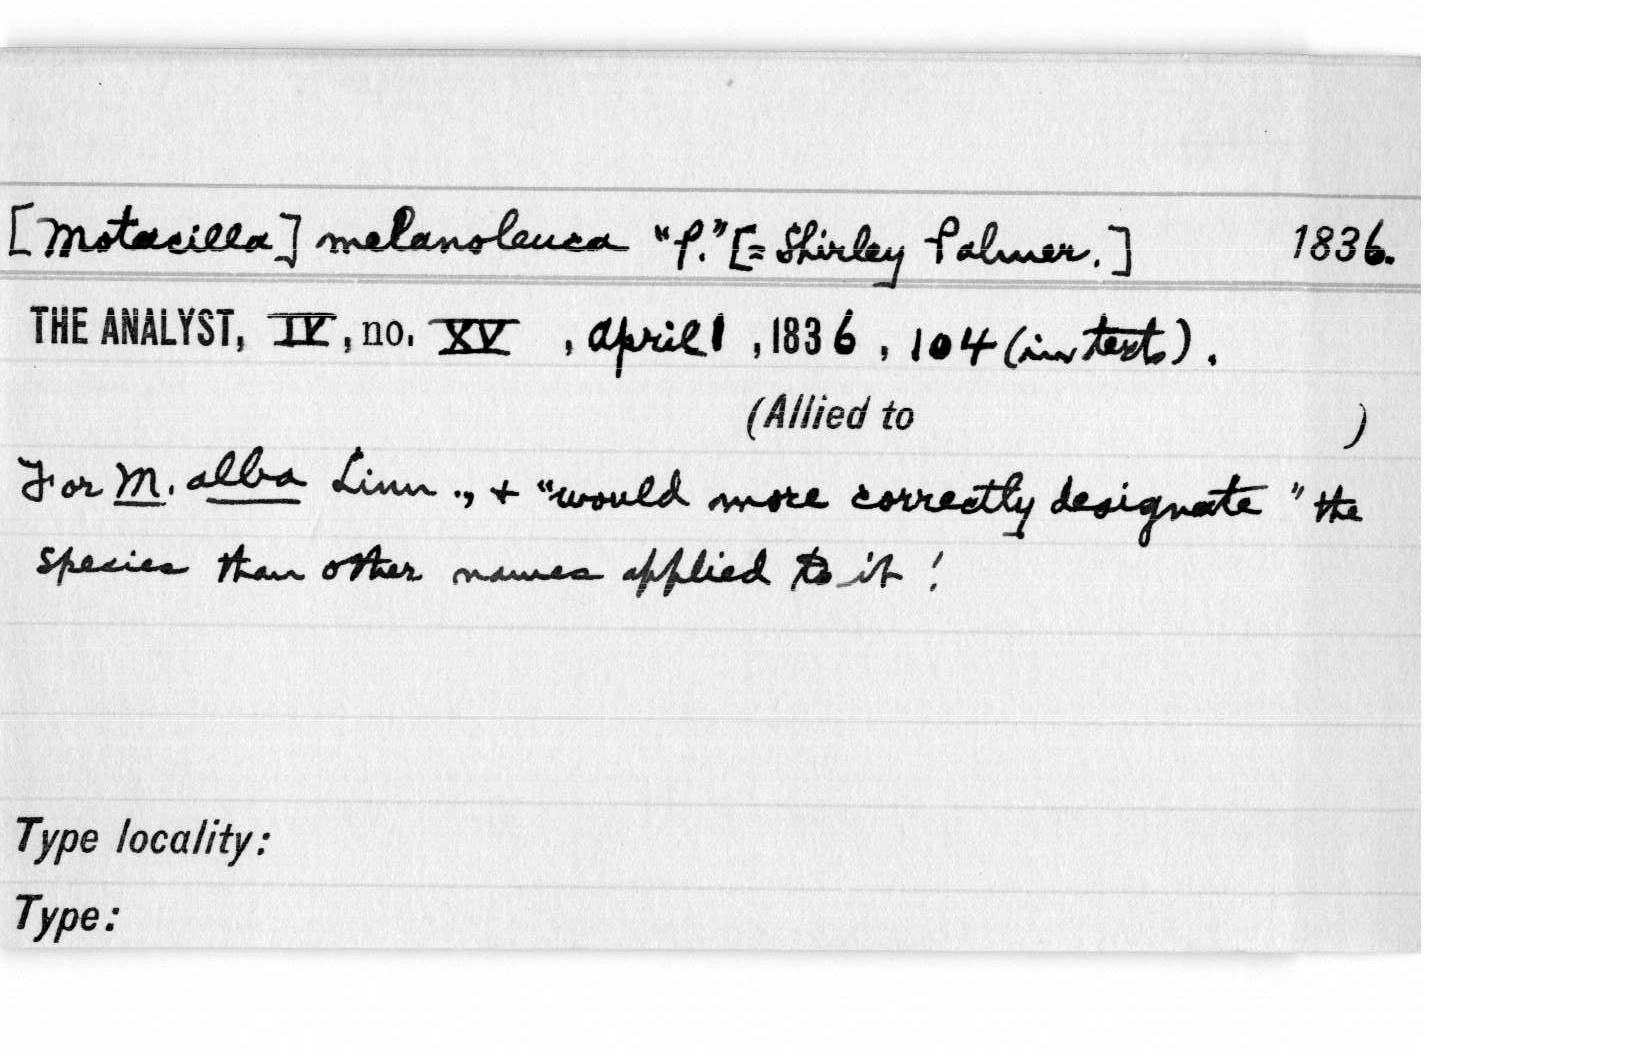 [Motacilla] melanoleuca "P." [= Shirley Palmer.] 1836.
THE ANALYST, IV, no. XV, April 1, 1836, 104 (in text).
(Allied to )
For M. alba Linn., + "would more correctly designate" the
species than other names applied to it!
Type locality:
Type: